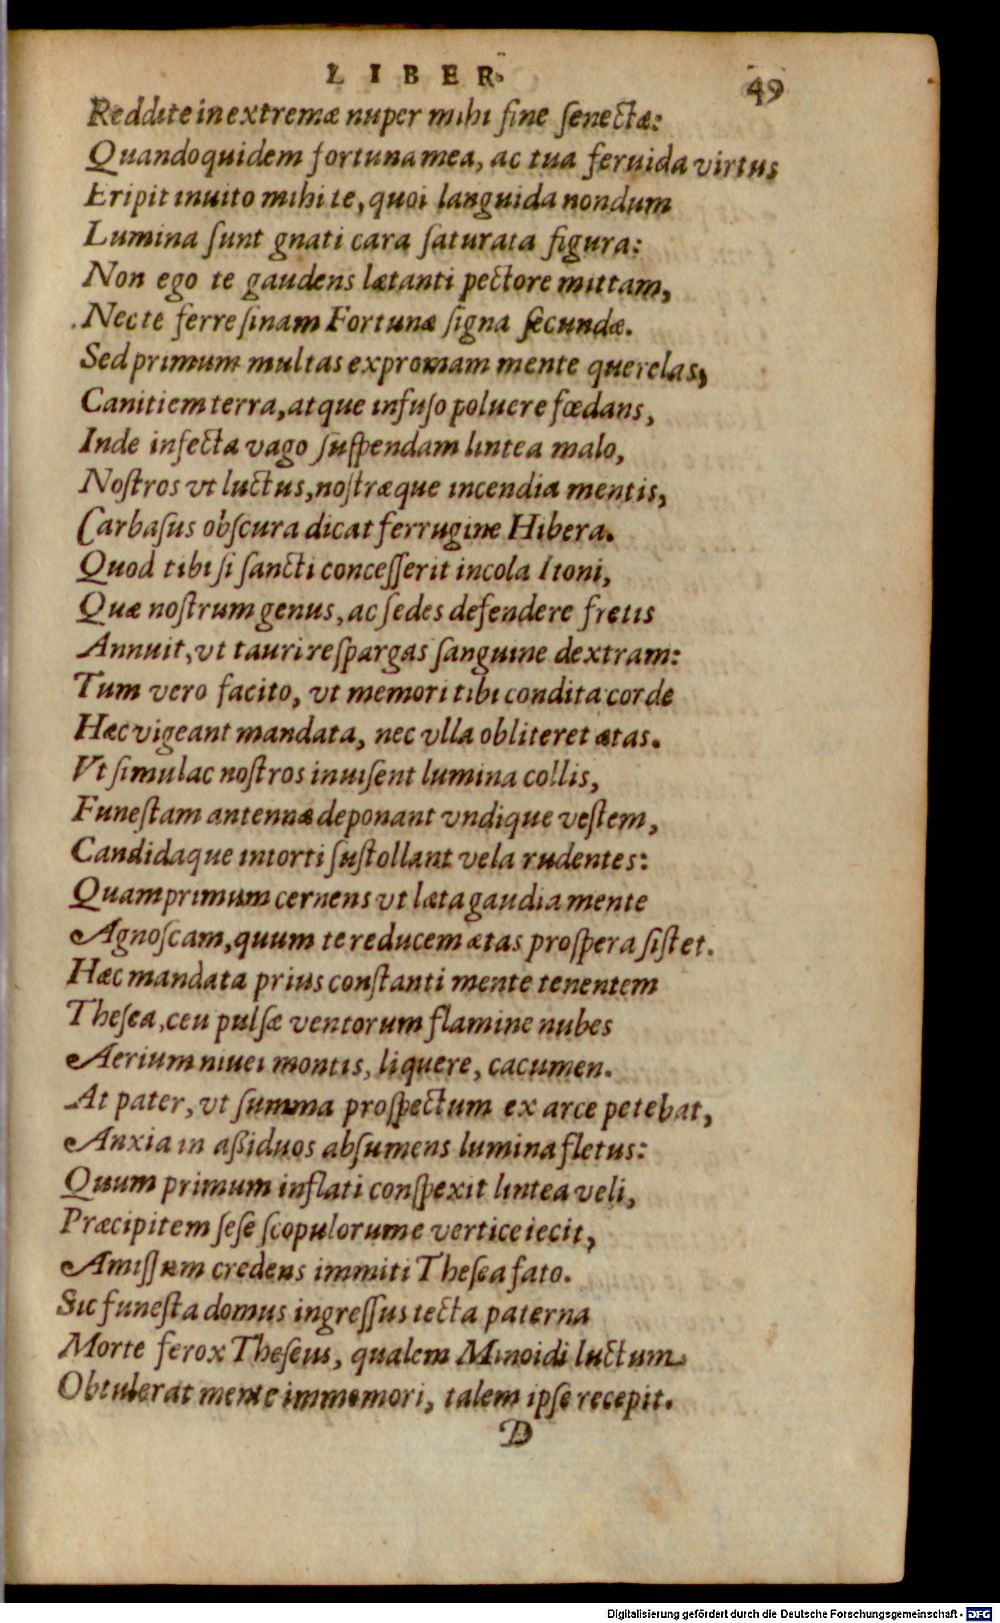 LIBER.
49
Reddite in extremæ nuper mihi fine ſenectæ:
Quandoquidem fortuna mea, ac tua feruida virtus
Eripit inuito mihi te, quoi languida nondum
Lumina ſunt gnati cara ſaturata figura:
Non ego te gaudens lætanti pectore mittam,
Nec te ferre ſinam Fortunæ ſigna ſecundæ.
Sed primum multas expromam mente querelas,
Canitiem terra, atque infuſo poluere fœdans,
Inde infecta vago ſuſpendam lintea malo,
Noſtros vt luctus, noſtræque incendia mentis,
Carbaſus obſcura dicat ferrugine Hibera.
Quod tibi ſi ſancti conceſſerit incola Itoni,
Quæ noſtrum genus, ac ſedes defendere fretis
Annuit, vt tauri reſpargas ſanguine dextram:
Tum vero facito, vt memori tibi condita corde
Hæc vigeant mandata, nec vlla obliteret ætas.
Vt ſimulac noſtros inuiſent lumina collis,
Funeſtam antennæ deponant vndique veſtem,
Candidaque intorti ſuſtollant vela rudentes:
Quamprimum cernens vt læta gaudia mente
Agnoſcam, quum te reducem ætas proſpera ſiſtet.
Hæc mandata prius conſtanti mente tenentem
Theſea, ceu pulſæ ventorum flamine nubes
Aerium niuei montis, liquere, cacumen.
At pater, vt ſumma proſpectum ex arce petebat,
Anxia in aßiduos abſumens lumina fletus:
Quum primum inflati conſpexit lintea veli,
Præcipitem ſeſe ſcopulorum e vertice iecit,
Amiſſum credens immiti Theſea fato.
Sic funeſta domus ingreſſus tecta paterna
Morte ferox Theſeus, qualem Minoidi luctum
Obtulerat mente immemori, talem ipſe recepit.
D
Digitalisierung gefördert durch die Deutsche Forschungsgemeinschaft - DFG